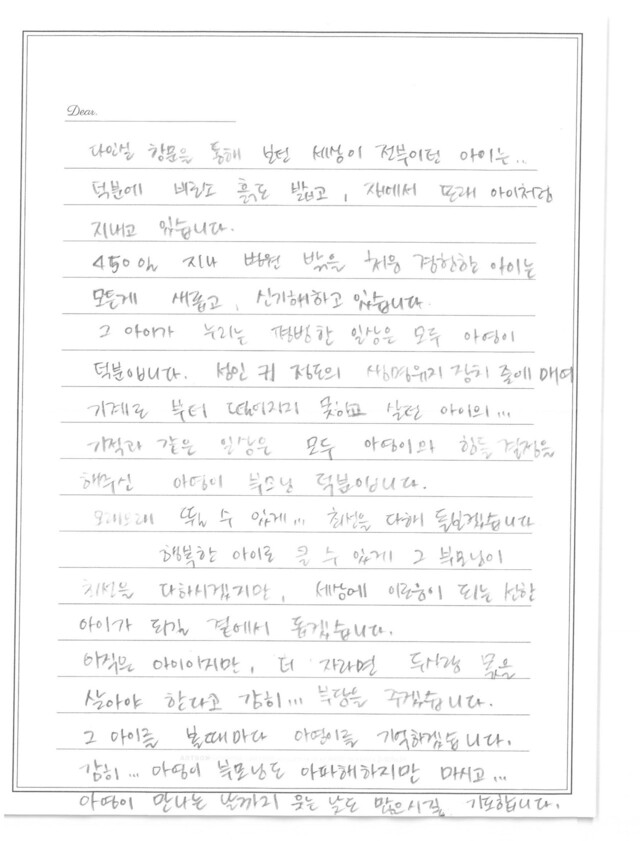 Dear.
다인실 창문을 통해 보던 세상이 전부이던 아이는..
덕분에 비로소 흙도 밟고, 또래 아이처럼
지내고 있습니다.
450일 지나 병원 밖을 처음 경험한 아이는
모든게 새롭고, 신기해하고 있습니다.
그 아이가 누리는 평범한 일상은 모두 아영이
덕분입니다. 성인 키 정도의 생명유지 장치 줄에 매여
기계로 부터 떨어지지 못하고 살던 아이의...
기적과 같은 일상은 모두 아영이와 힘든 결정을
해주신 아영이 부모님 덕분입니다.
오래오래 뛸 수 있게... 최선을 다해 돌보겠습니다
행복한 아이로 클 수 있게 그 부모님이
최선을 다하시겠지만, 세상에 이로움이 되는 선한
아이가 되길 곁에서 돕겠습니다.
아직은 아이이지만, 더 자라면 두사람 몫을
살아야 한다고 감히... 부담을 주겠습니다.
그 아이를 볼때마다 아영이를 기억하겠습니다.
감히... 아영이 부모님도 아파해하지만 마시고...
아영이 만나는 날까지 웃는 날도 많으시길 기도합니다.